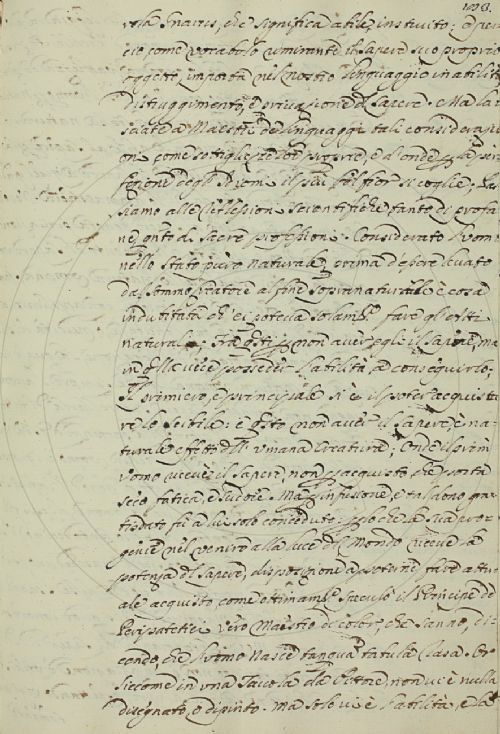 100.
che significa abile, instruito:
cio come vocabolo il sapere suo proprio
oggetto, importa nel nostro linguaggio inabilità
distruggimento, e privatione del sapere. Ma la
sciate a Maestri de linguaggi tali considerazi
oni come sottigliezze
fezione degl'Huomini il più bel fior si coglie;
siamo alle riflessioni scientifiche tanto di profa
ne q.nto di sacre professioni. Considerato l'uomo
nello stato puro naturale, prima d'essere levato
dal sommo Creatore al fine sopranaturale è cosa
indubitata ch'ei poteva solam.te fare gli atti
naturali: Frà q.sti non aver egli il sapere, ma
in q.lla vece posseder l'abilità a conseguirlo;
Il primiero, e principale si è il poter acquista
re lo scibile: e q.sto non aver il sapere, è na
turale effetto dell'umana Creatura: Onde il prim
uomo riceve il sapere, non acquisto che porta
seco fatica, e sudore. Ma infusione, e tal dono gra
tis dato fù a lui solo conceduto: che la sua pro
genie nel venire alla luce del Mondo riceve la
potenza del sapere, disposizione a poterne fare attu
ale acquisto come ottimam.te il Principe de
Peripatetici vero Maestro di coloro che sanno, di
cendo, che l'uomo nasce tanquam tabula rasa. Or
siccome in una Tavola da Pittore, non vi è nulla
disegnato, o dipinto. ma solo vi è l'abilità, e la